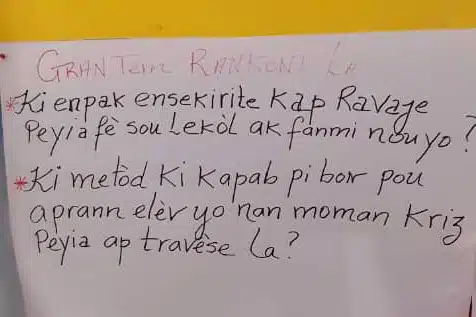 GRAN Tèm RANKONT LA
*Ki enpak ensekirite kap Ravaje
Peyia fè sou Lekòl ak fanmi nou yo?
*Ki metòd ki kapab pi bon pou
aprann elèv yo nan moman kriz
Peyia ap travèse la?